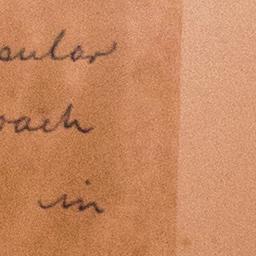 sular
oach
in